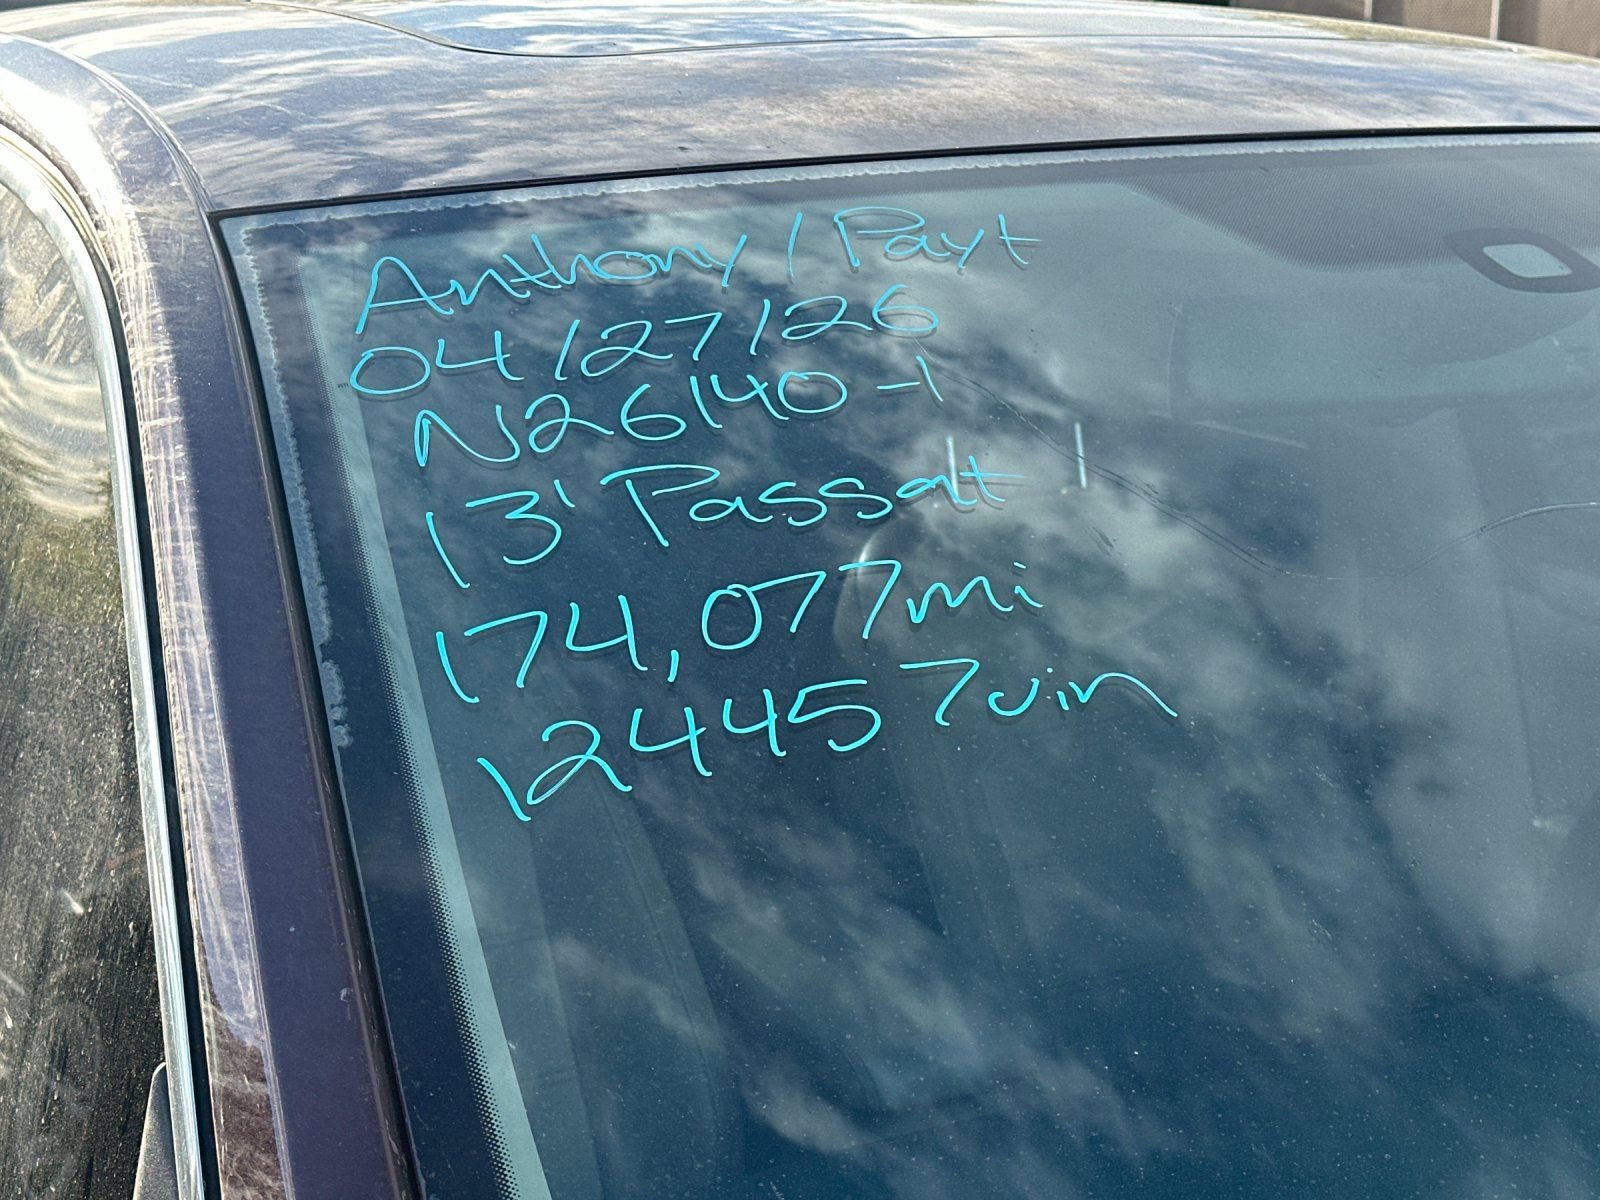 Anthony / Payt
04/27/26
N26140-1
13' Passat
174,077mi
124457vin